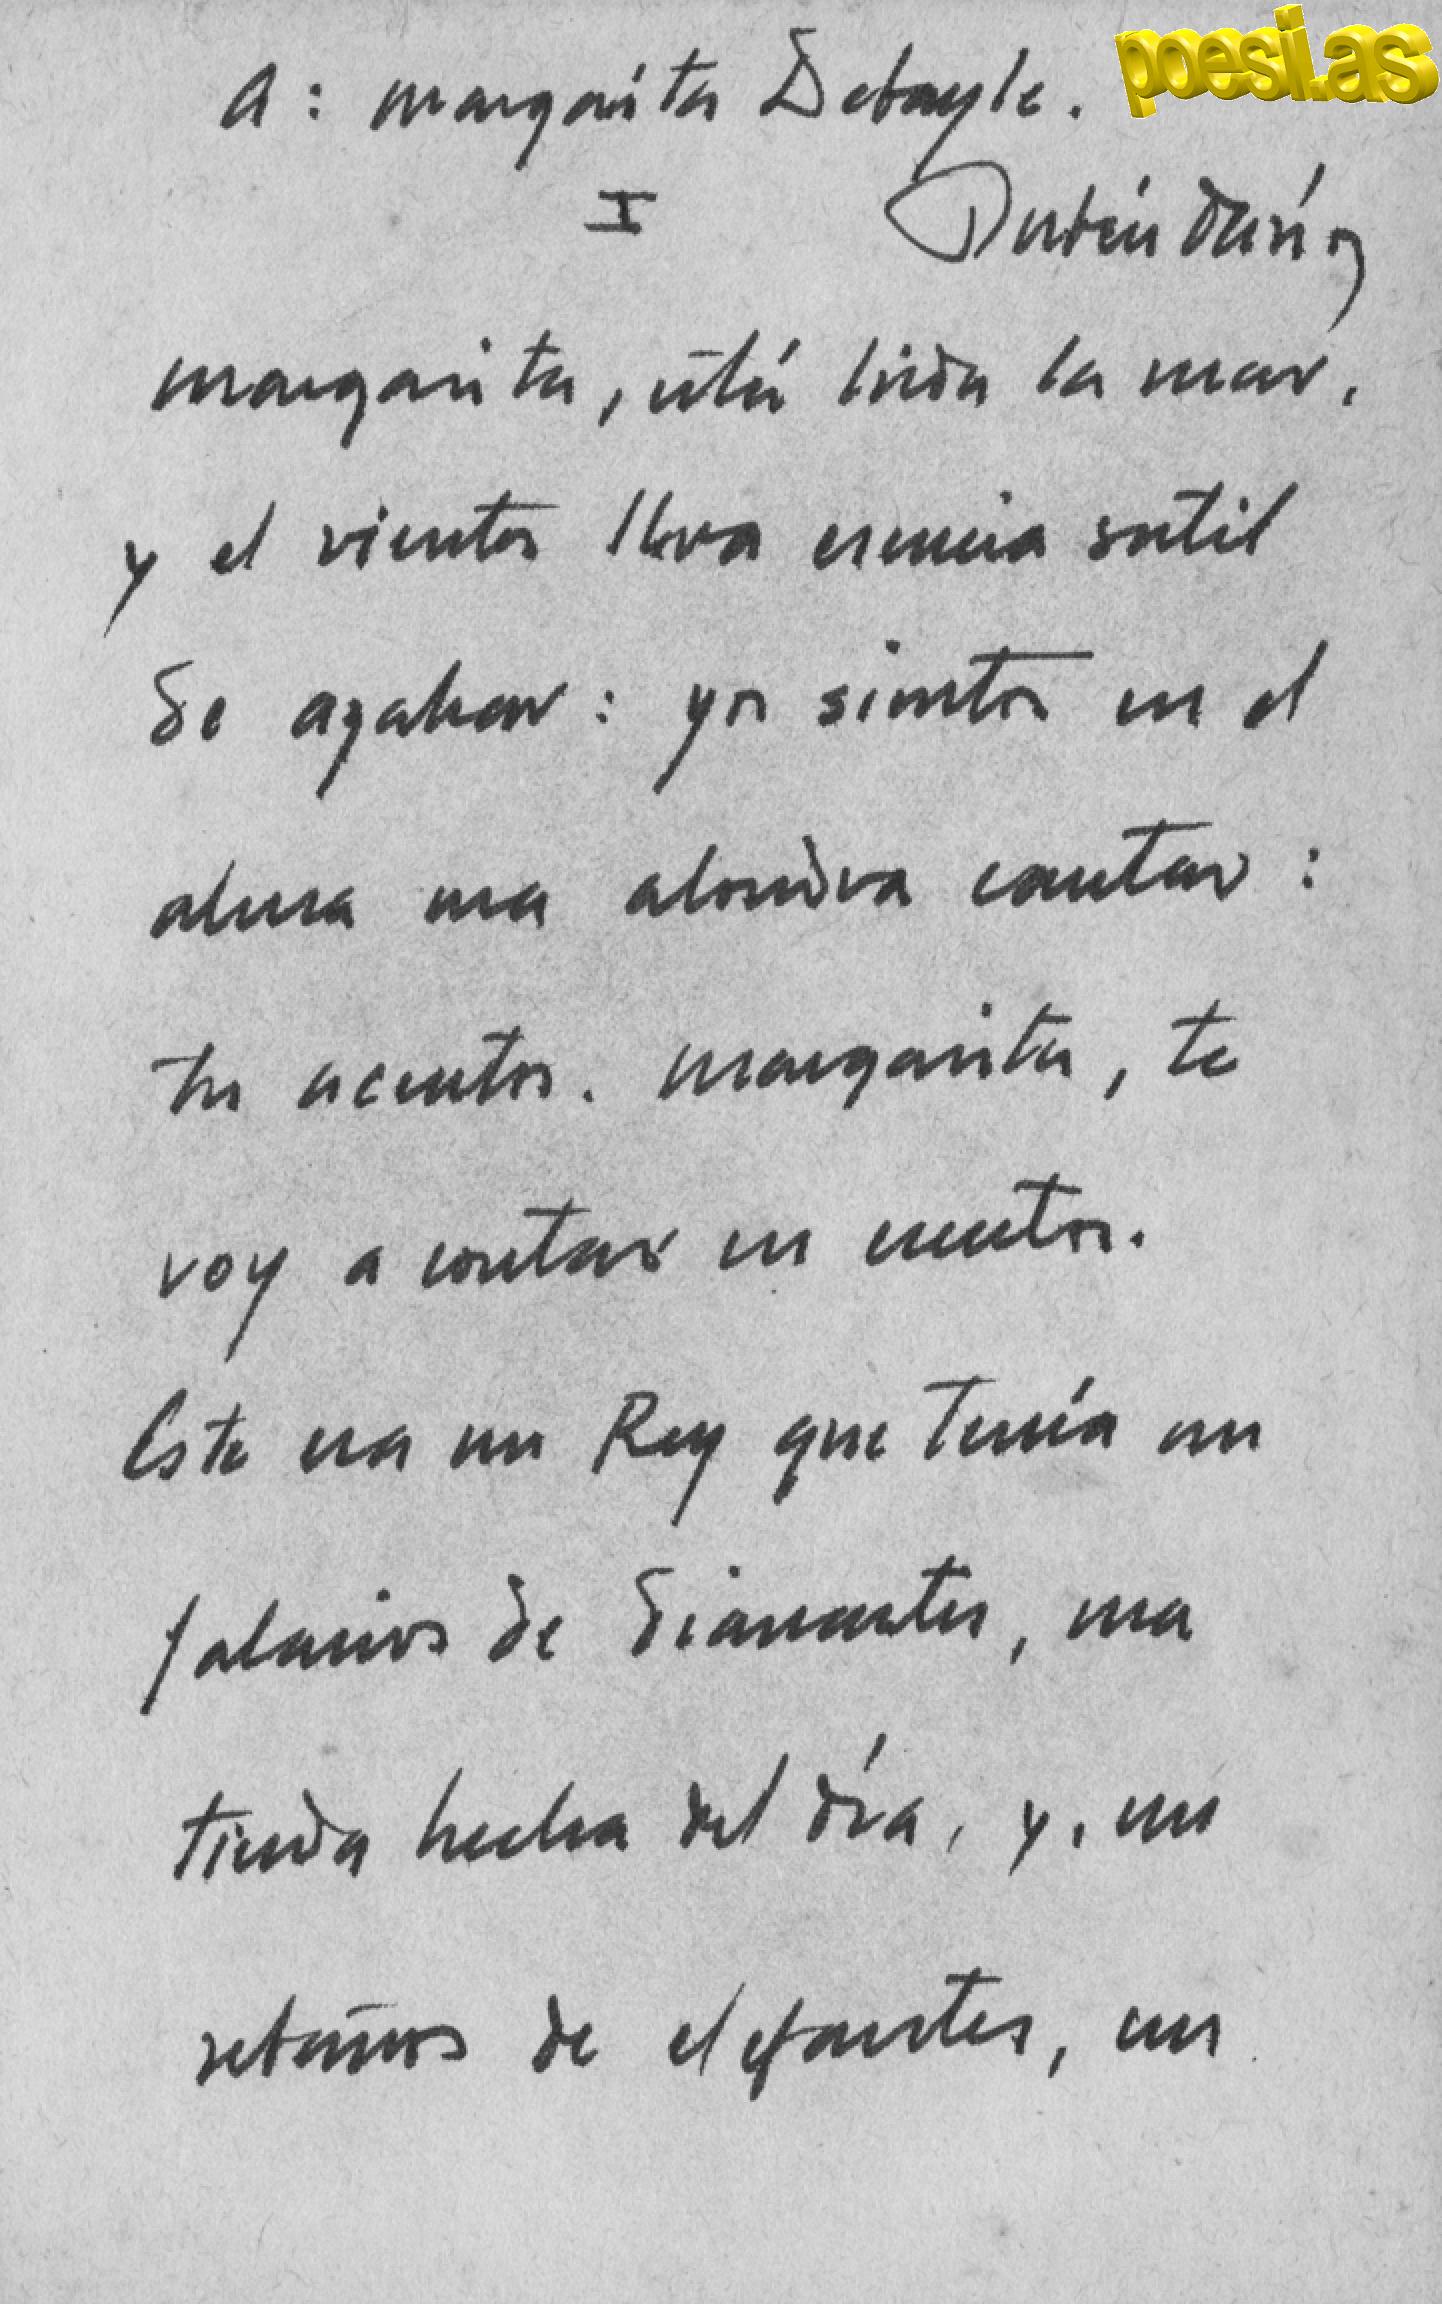 A: Margarita Debayle.
poesi.as
I
Rubén Darío
Margarita, está linda la mar,
y el viento lleva esencia sutil
de azahar: yo siento en el
alma una alondra cantar:
tu acento. Margarita, te
voy a contar un cuento.
Este era un Rey que tenía un
palacio de diamantes, una
tienda hecha del día, y, un
rebaño de elefantes, un